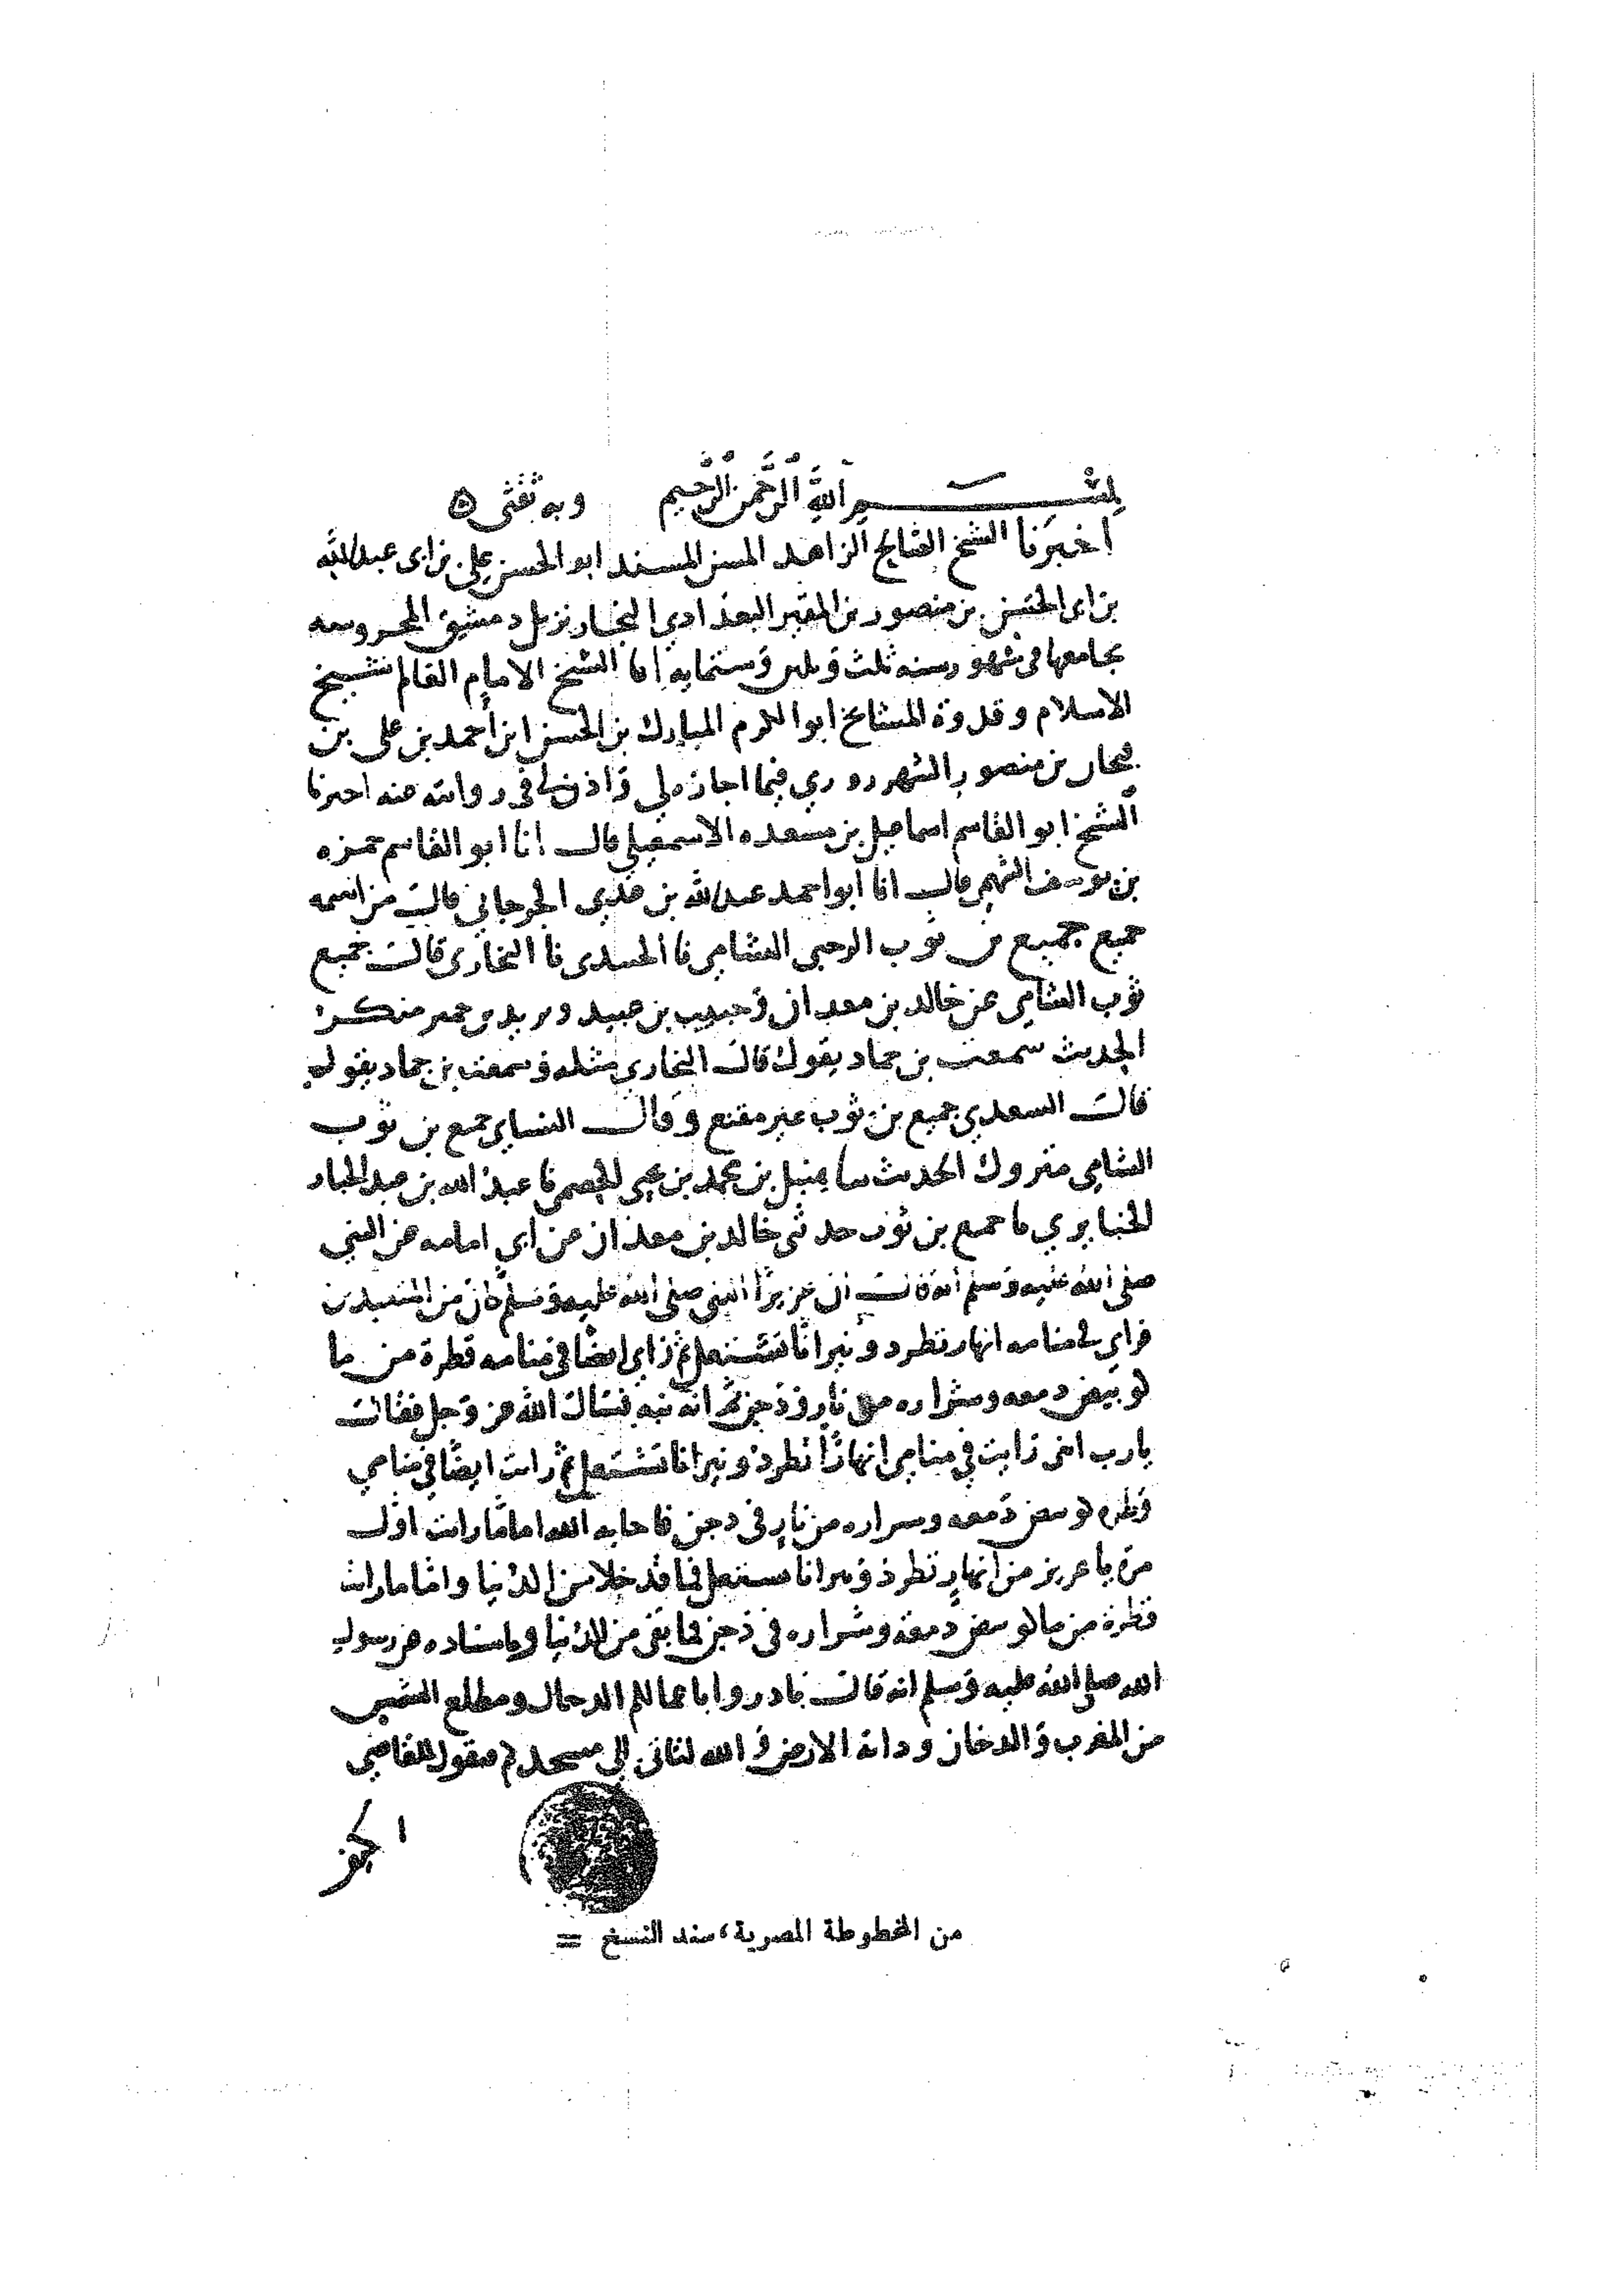 بسم الله الرحمن الرحيم وبه ثقتى
اخبرنا الشيخ الصالح الزاهد المسن المسند ابو الحسن على بن ابى عبد الله
بن ابى الحسن بن منصور بن المقير البغدادي النجار نزيل دمشق المحروسه
بجامعها فى شهور سنه ثلث وثلثين وستمايه انا الشيخ الامام العالم شيخ
الاسلام وقدوة المشايخ ابو الكرم المبارك بن الحسن ابن أحمد بن على بن
فتحان بن منصور الشهرزوري فيما اجازه لي واذن لي في روايته عنه اخبرنا
الشيخ ابو القاسم اسماعيل بن مسعده الاسمعيلي قال انا ابو القاسم حمزه
بن يوسف السهمي قال انا ابو احمد عبد الله بن عدي الجرجاني قال من اسمه
جميع جميع بن ثوب الرحبي الشامي نا الجنيدى نا البخارى قال جميع
ثوب الشامي عن خالد بن معدان وحبيب بن عبيد ويزيد بن خمير منكر
الحديث سمعت بن حماد يقول قال البخاري مثله وسمعت بن حماد يقول
قال السعدي جميع بن ثوب غير مقنع وقال النساي جميع بن ثوب
الشامي متروك الحديث بن محمد بن يحيى الحمصي نا عبد الله بن عبد الجبار
الخبايري نا جميع بن ثوب حدثني خالد بن معدان عن ابي امامه عن النبي
صلى الله عليه وسلم انه قال ان عزيرا النبي صلى الله عليه وسلم كان من المتعبدين
فراى في منامه انهار تطرد ونيرانا تشتعل ثم راى ايضا فى منامه قطرة من ما
دمعه وشراره من نار ثم انه نبه فسال الله عز وجل فقال
يارب انى رايت في منامي انهارًا تطرد ونيرانا تشتعل ثم رايت ايضًا في منامي
قطره دمعه وشراره من نار في دجن فاجابه الله اما ما رايت اول
مرة يا عزير من انهار تطرد ونيرانا تشتعل فما قد خلا من الدنيا واما ما رايت
قطرة من ما دمعه وشراره فى دجن فما بقى من الدنيا وباسناده عن رسول
الله صلى الله عليه وسلم انه قال بادروا باعمالكم الدجال ومطلع الشمس
من المغرب والدخان ودابة الارض والله لتاتى الى مسجدكم
من المخطوطة المصرية، سند النسخ =